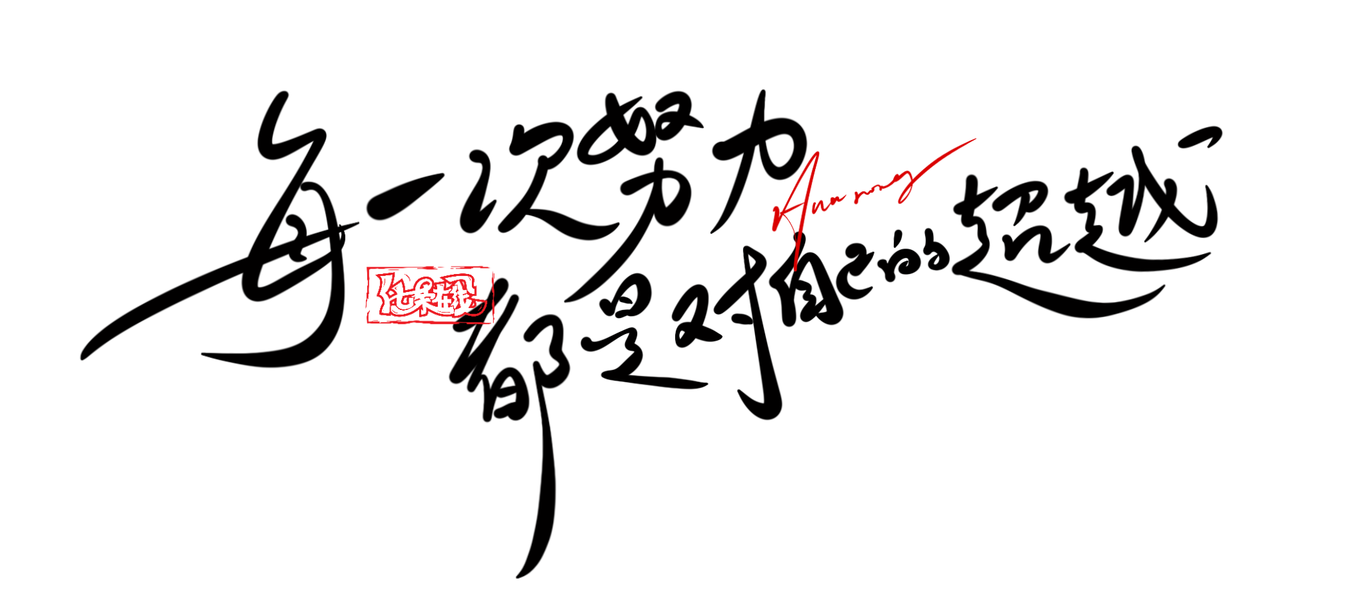 每一次努力
都是对自己的超越